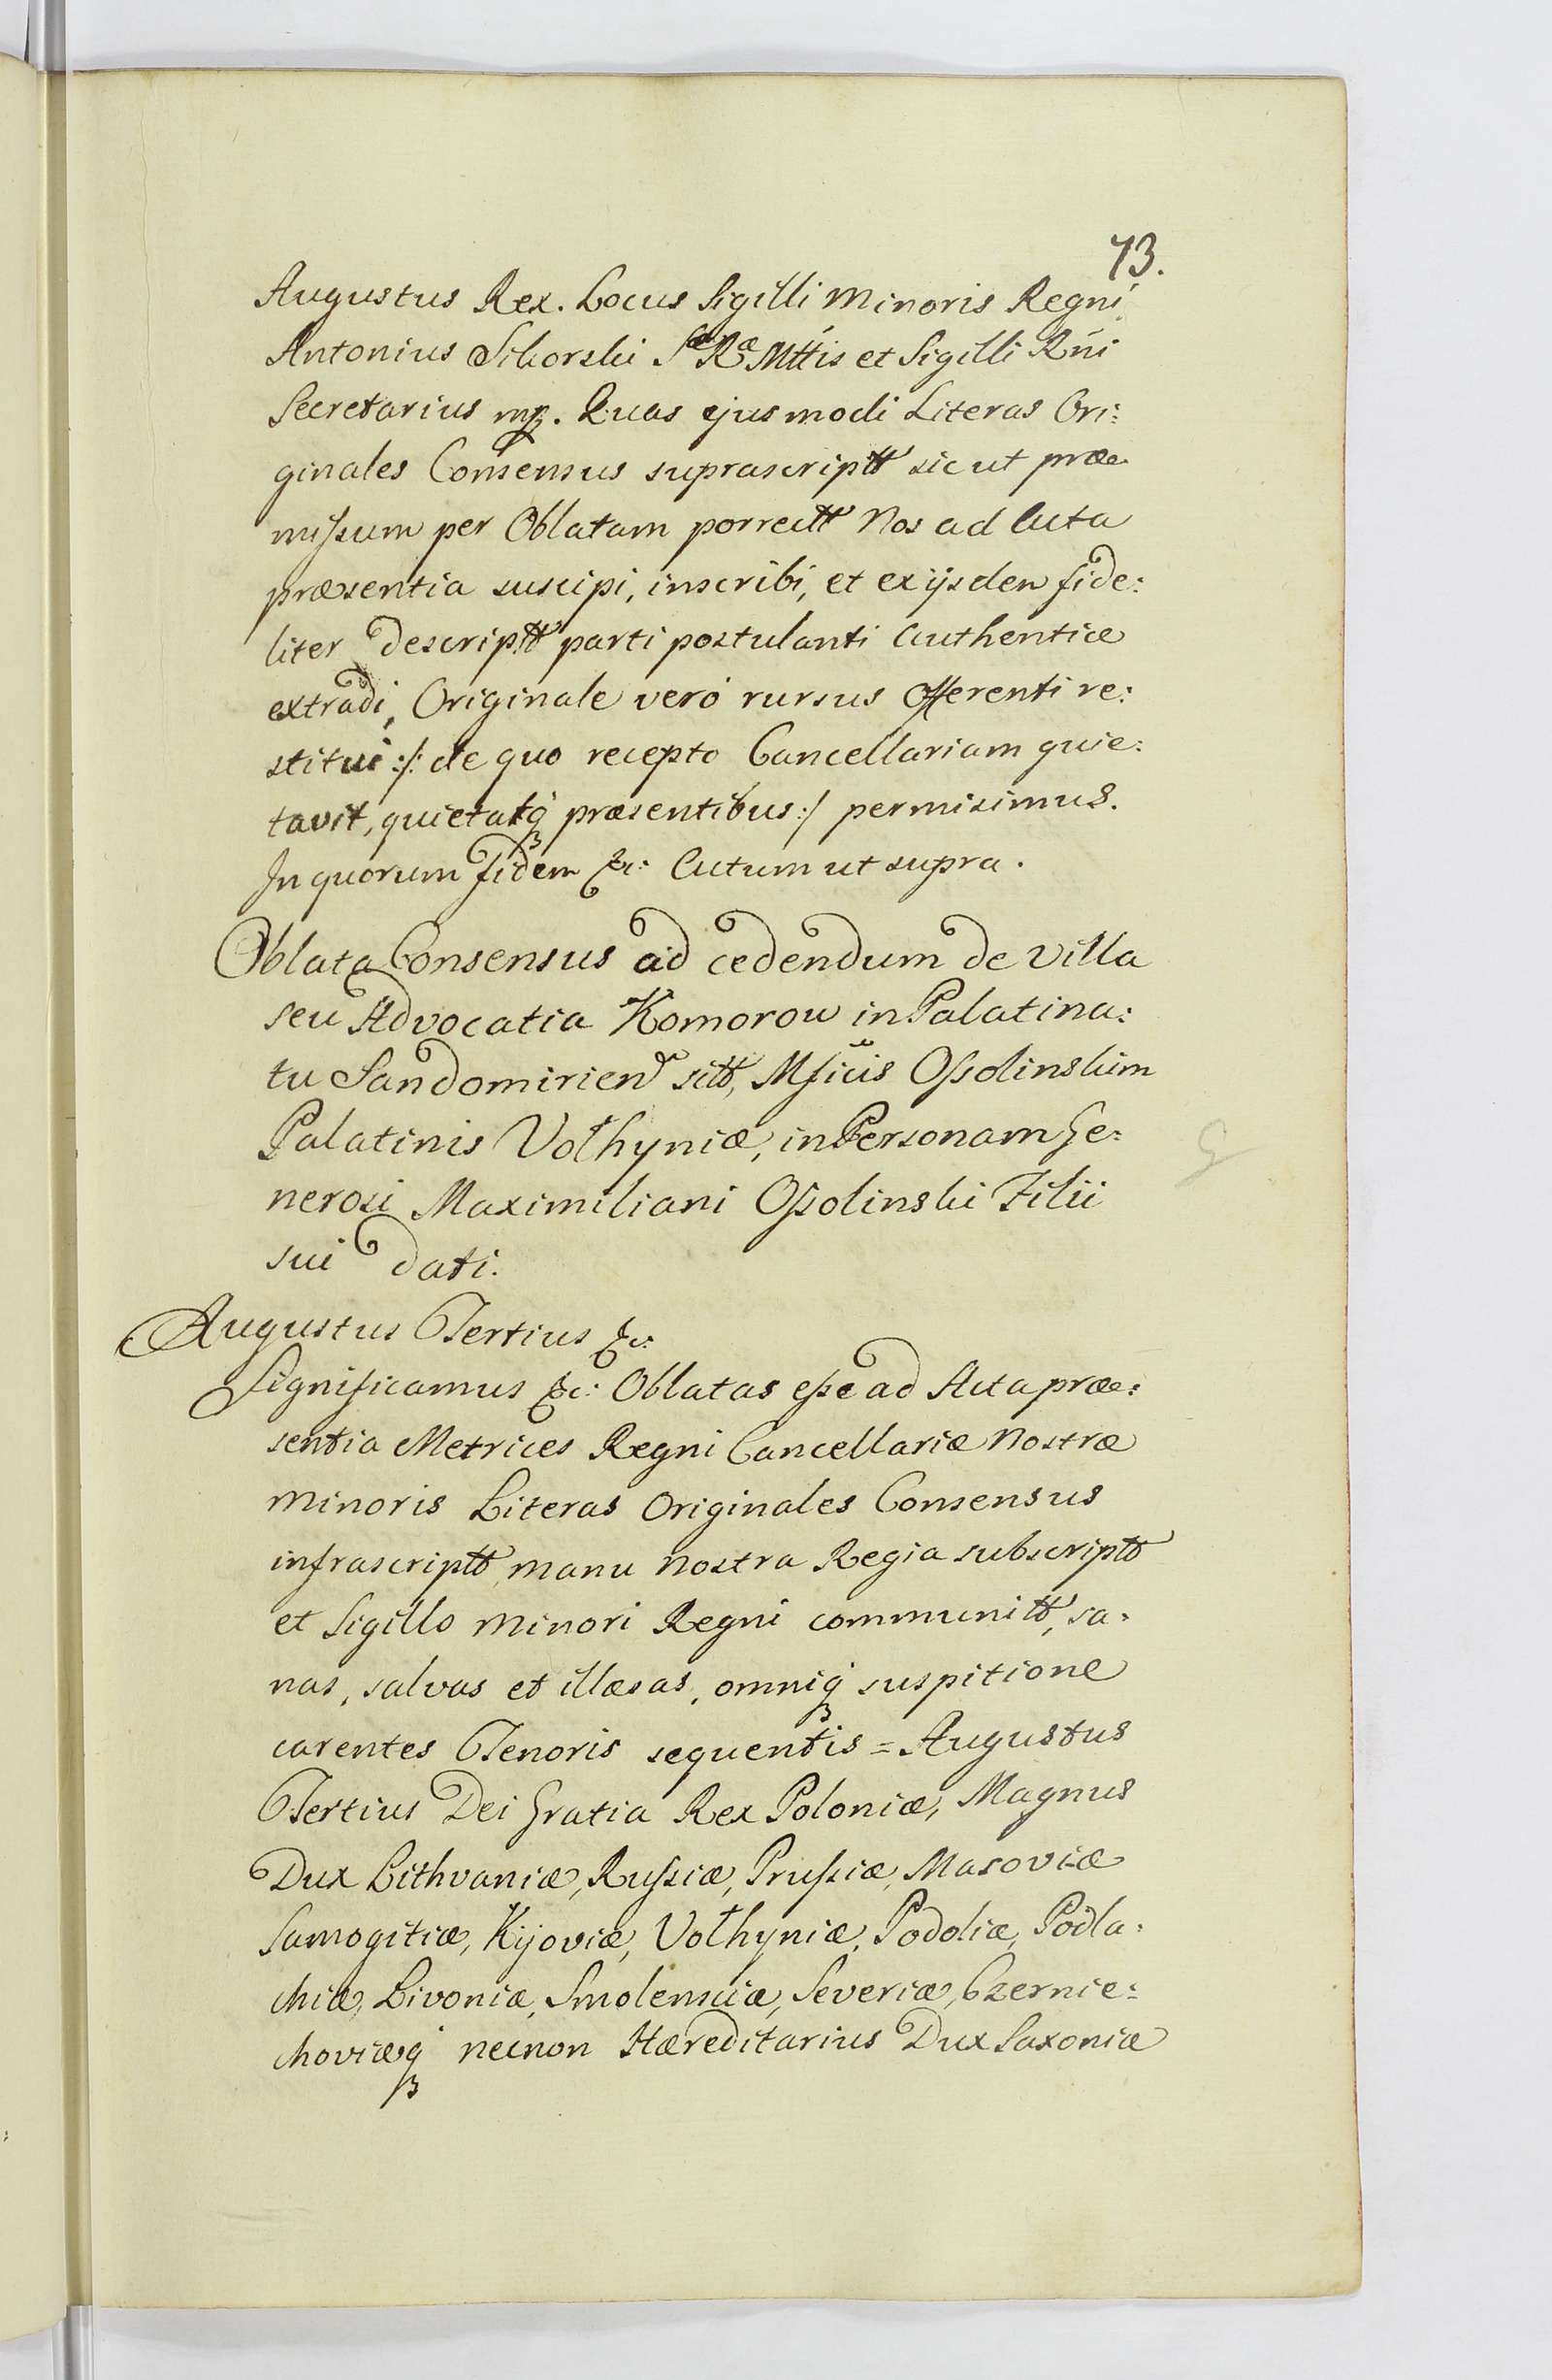 73.
Augustus Rex. Locus Sigilli Minoris Regni
Antonius Sikorski Sæ Ræ Mttis et Sigilli Rñi
Secretarius mp. Quas ejusmodi Literas Ori:
ginales Consensus suprascriptt sicut præ
missum per Oblatam porrectt Nos ad Acta
præsentia suscipi, inscribi, et ex ijsdem fide:
liter descriptt parti postulanti Authentice
extradi, Originale veró rursus Offerenti re:
stitui :/: de quo recepto Cancellariam quie:
tavit, quietatq præsentibus :/ permisimus.
In quorum fidem &c: Actum ut supra.
Oblata Consensus ad cedendum de Villa
seu Advocatia Komorow in Palatina:
tu Sandomirien sitt, Mficis Ossolinskim
Palatinis Volhyniæ, in Personam Ge:
nerosi Maximiliani Ossolinski Filii
sui dati.
Augustus Tertius &c:
Significamus &c: Oblatas esse ad Acta præ:
sentia Metrices Regni Cancellariæ Nostræ
Minoris Literas Originales Consensus
infrascriptt manu Nostra Regia subscriptt
et Sigillo Minori Regni communitt, sa:
nas, salvas et illæsas, omniq suspitione
carentes Tenoris sequentis = Augustus
Tertius Dei Gratia Rex Poloniæ, Magnus
Dux Lithvaniæ, Russiæ, Prussiæ, Masoviæ
Samogitiæ, Kijoviæ, Volhyniæ, Podoliæ, Podla:
chiæ, Livoniæ, Smolensciæ, Severiæ, Czernie:
choviæq necnon Hæreditarius Dux Saxoniæ